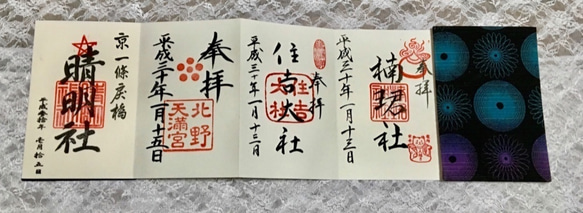 奉拝
楠珺社
平成三十年一月十三日
奉拝
住吉大社
平成三十年一月十三日
奉拝
北野
天満宮
平成三十年一月十五日
京一條戻橋
晴明社
平成参拾年 壱月拾五日